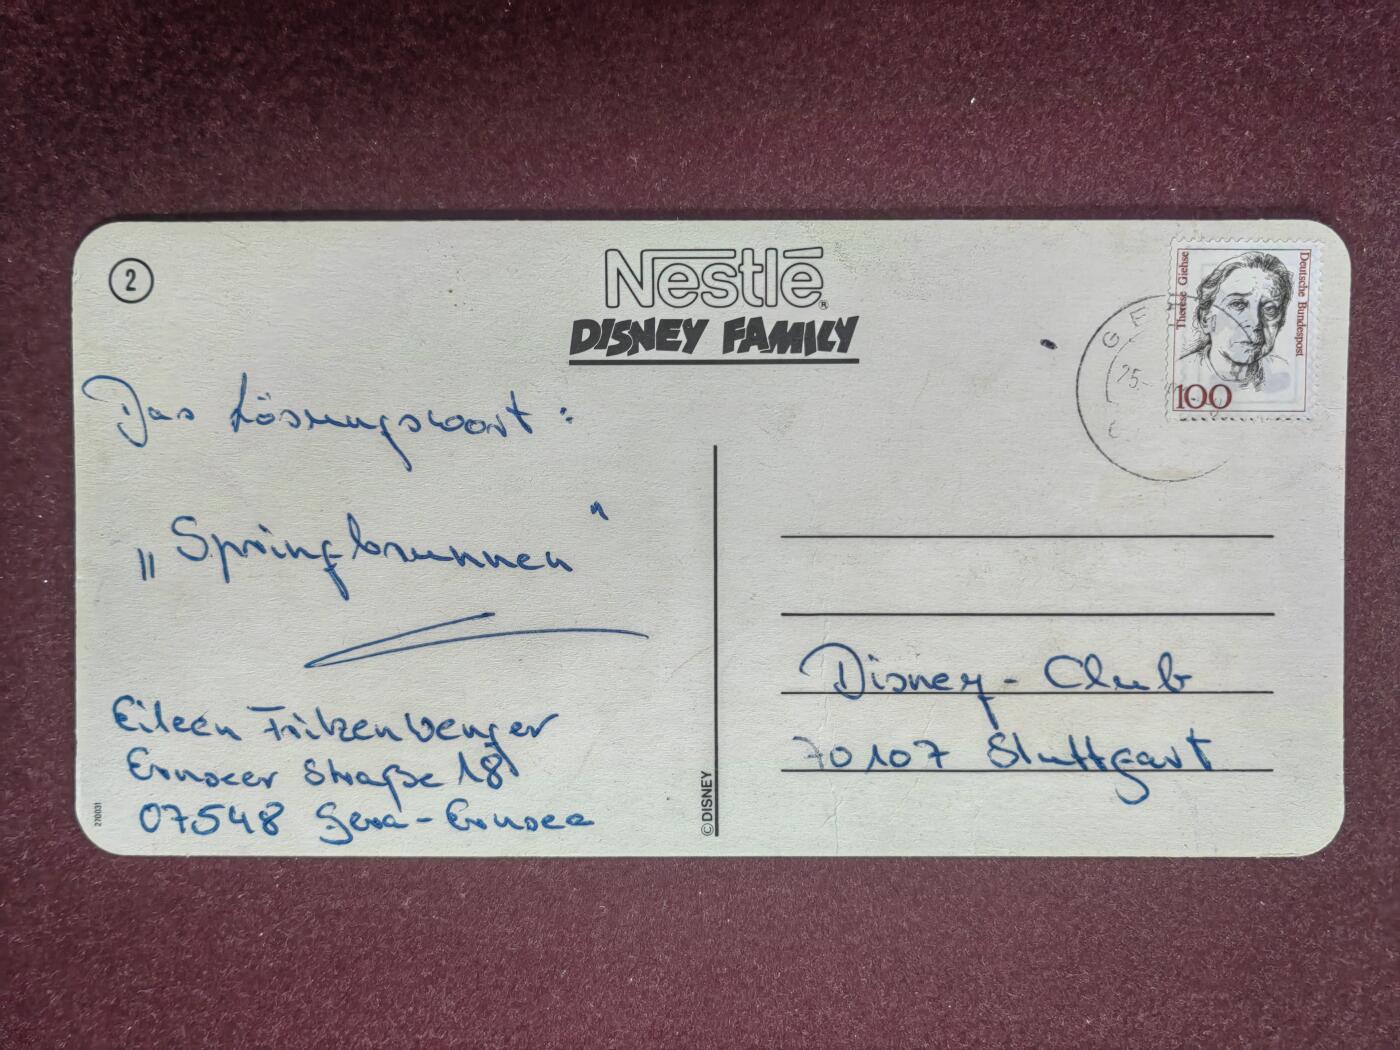 2
Nestlé
DISNEY FAMILY
Therese Giehse
Deutsche Bundespost
100
GE
25.
Das Lösungswort:
„Springbrunnen"
Eileen Fritzenwenger
Ernseer Straße 18
07548 Gera-Ernsee
Disney-Club
70107 Stuttgart
©DISNEY
270031